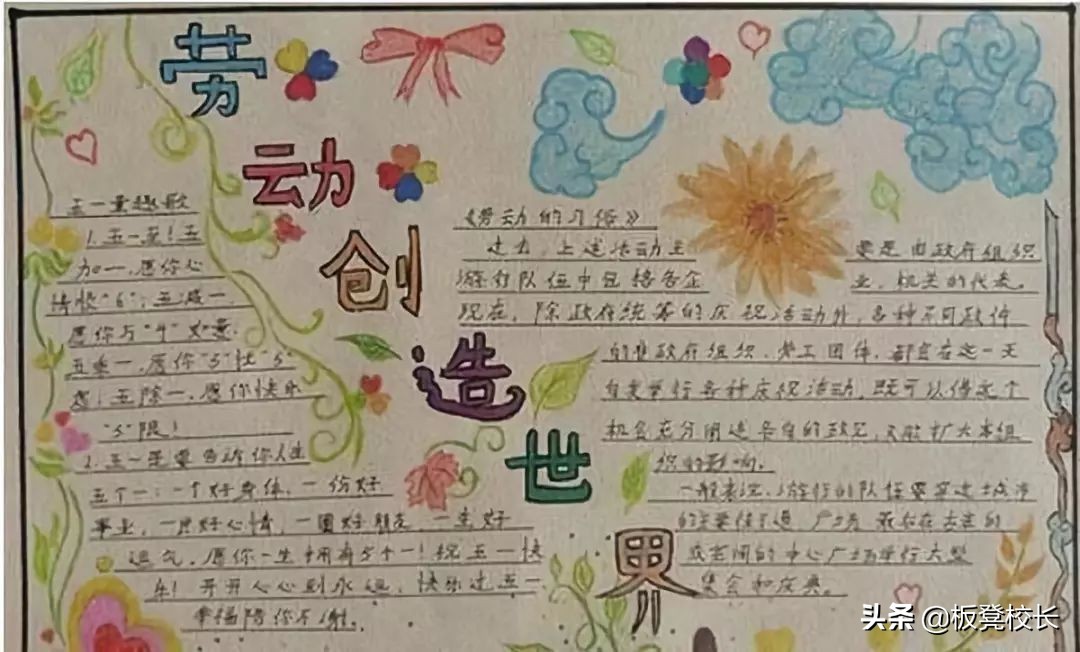 劳动创造世界
五一童趣歌
1.五一至！五
加一，愿你心
情快"6"；五减一，
愿你与"4"
五乘一，愿你"5"快"5"
意；五除一，愿你快乐
"5"限！
2.五一是要告诉你人生
五个一：一个好身体，一份好
事业，一片好心情，一圈好朋友，一生好
运气，愿你一生拥有5个一！祝五一快
乐！开开心心到永远，快乐过五一
幸福陪你不谢。
《劳动的习俗》
过去，上述活动主要是由政府组织
游行队伍中包括各企业、机关的代表。
现在，除政府统筹的庆祝活动外，各种不同政件
的非政府组织、劳工团体，都会在这一天
自发举行各种庆祝活动，既可以借这个
机会充分阐述各自的政见，又能扩大本组
织的影响。
一般来说，游行的队伍要穿过城市
的主要街道、广场，最后在
的中心广场举行大型
集会和庆典。
头条 @板凳校长